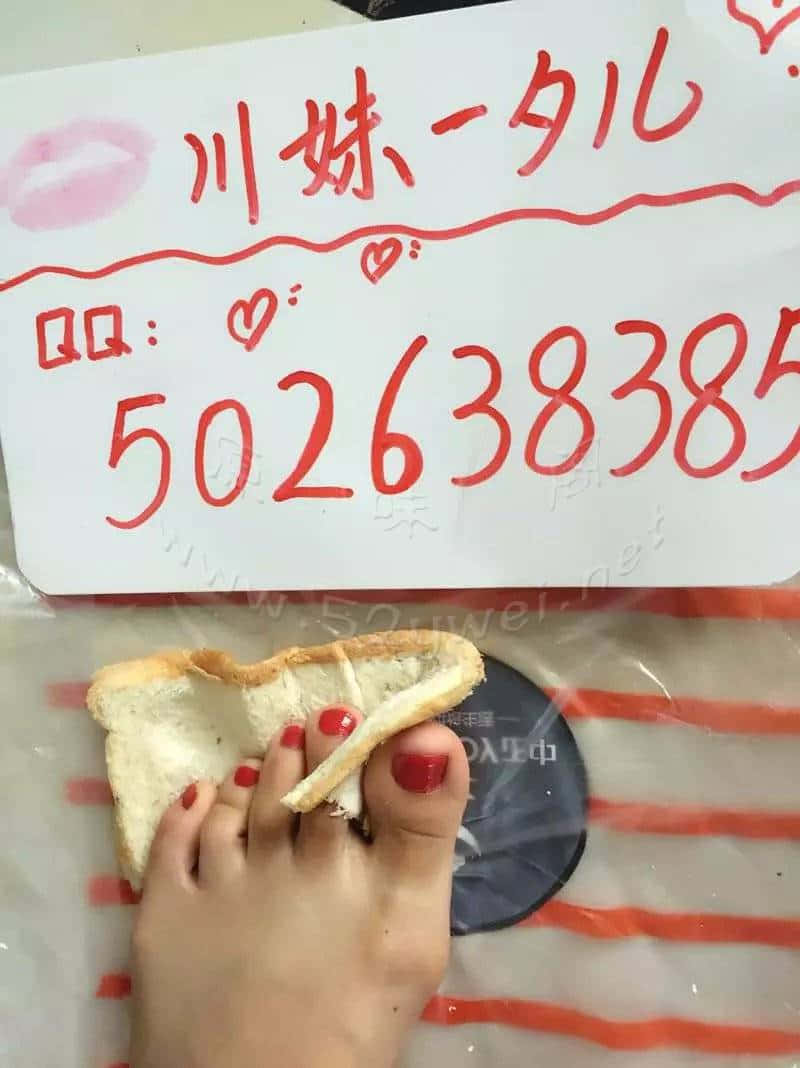 川妹一夕儿
QQ:
502638385
原味网
www.52ywei.net